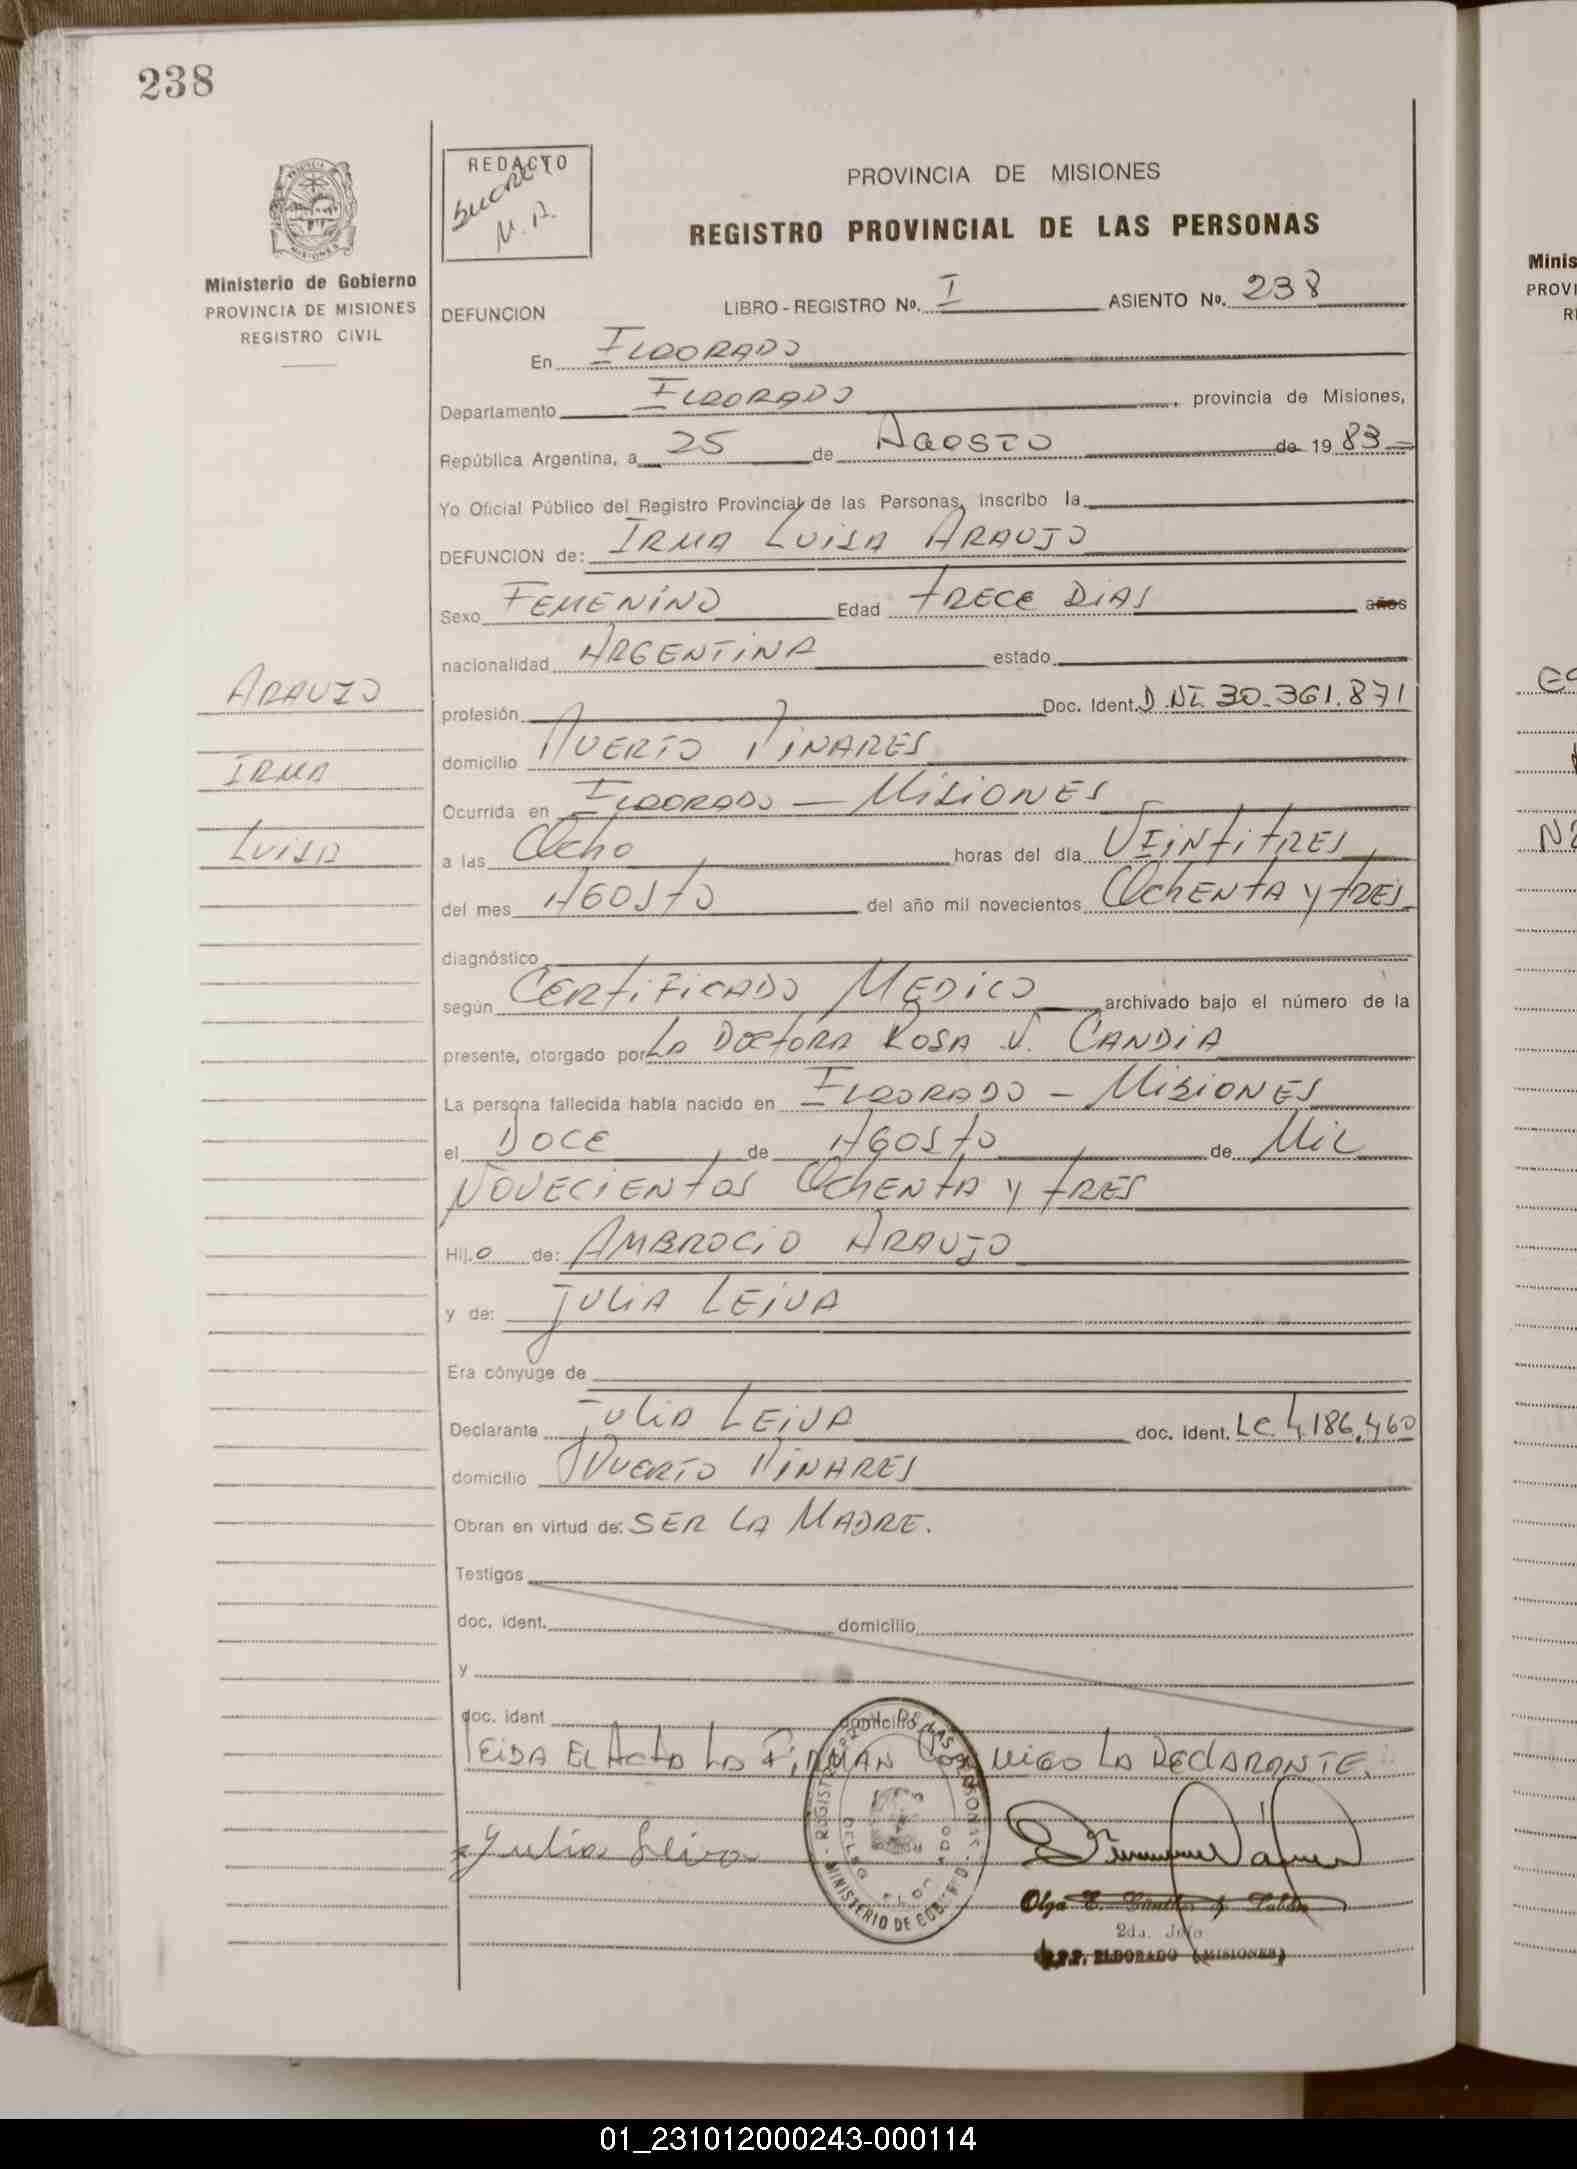 238
REDACTO
SUCRE
M. A.
PROVINCIA DE MISIONES
REGISTRO PROVINCIAL DE LAS PERSONAS
Ministerio de Gobierno
PROVINCIA DE MISIONES
REGISTRO CIVIL
DEFUNCION LIBRO - REGISTRO Nº. I ASIENTO Nº. 238
En ELDORADO
Departamento ELDORADO, provincia de Misiones,
República Argentina, a 25 de AGOSTO de 19 83
Yo Oficial Público del Registro Provincial de las Personas, inscribo la
DEFUNCION de: IRMA LUISA ARAUJO
Sexo FEMENINO Edad TRECE DIAS años
nacionalidad ARGENTINA estado
ARAUJO
profesión Doc. Ident. DNI. 30.361.871
domicilio PUERTO PINARES
IRMA
Ocurrida en ELDORADO - MISIONES
LUISA
a las OCHO horas del día VEINTITRES
del mes AGOSTO del año mil novecientos OCHENTA Y TRES
diagnóstico
según CERTIFICADO MEDICO archivado bajo el número de la
presente, otorgado por LA DOCTORA ROSA V. CANDIA
La persona fallecida había nacido en ELDORADO - MISIONES
el DOCE de AGOSTO de MIL
NOVECIENTOS OCHENTA Y TRES
Hij o de: AMBROCIO ARAUJO
y de: JULIA LEIVA
Era cónyuge de
Declarante JULIA LEIVA doc. ident. LC. 4.186.460
domicilio PUERTO PINARES
Obran en virtud de: SER LA MADRE.
Testigos
doc. ident. domicilio
y
doc. ident domicilio
LEIDA EL ACTA LA FIRMAN CONMIGO LA DECLARANTE.
Julia Leiva
REGISTRO DE LAS PERSONAS
MINISTERIO DE GOBIERNO
Olga E.
2da. Jefa
R.P.P. ELDORADO (MISIONES)
Minis
PROVI
R
01_231012000243-000114